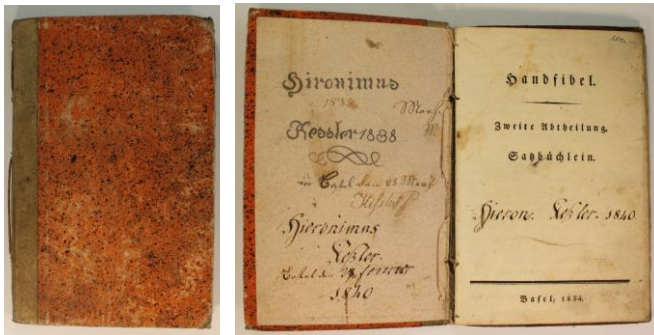 Hironimus
1838
Kessler 1838
in Basel den 28 März
Hieronimus
Keßler.
Basel den
1840
Handfibel.
Zweite Abtheilung.
Satzbüchlein.
Hieron. Keßler. 1840
Basel, 1834.